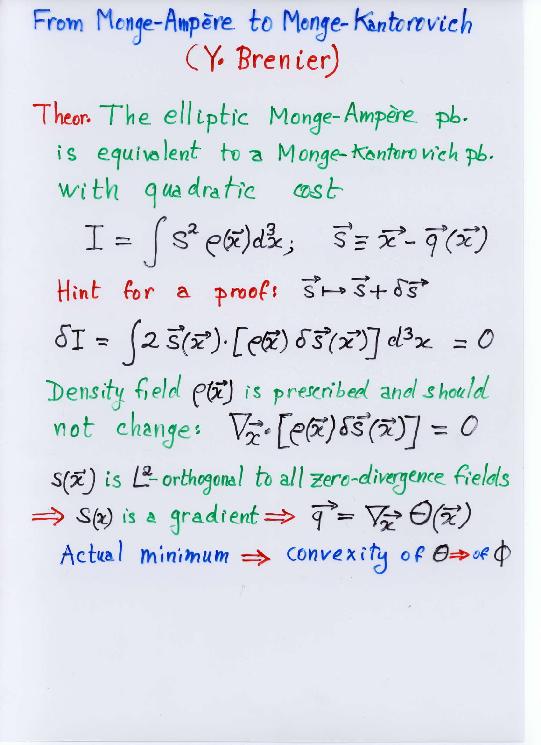 From Monge-Ampère to Monge-Kantorovich
(Y. Brenier)
Theor. The elliptic Monge-Ampère pb.
is equivalent to a Monge-Kantorovich pb.
with quadratic cost
I = ∫ S² ρ(x⃗)d³x; s⃗ ≡ x⃗ - q⃗(x⃗)
Hint for a proof: s⃗ ↦ s⃗ + δs⃗
δI = ∫2 s⃗(x⃗)·[ρ(x⃗) δs⃗(x⃗)] d³x = 0
Density field ρ(x⃗) is prescribed and should
not change: ∇x⃗·[ρ(x⃗)δs⃗(x⃗)] = 0
s(x⃗) is L²-orthogonal to all zero-divergence fields
⇒ S(x) is a gradient ⇒ q⃗ = ∇x⃗ Θ(x⃗)
Actual minimum ⇒ convexity of Θ ⇒ of ϕ